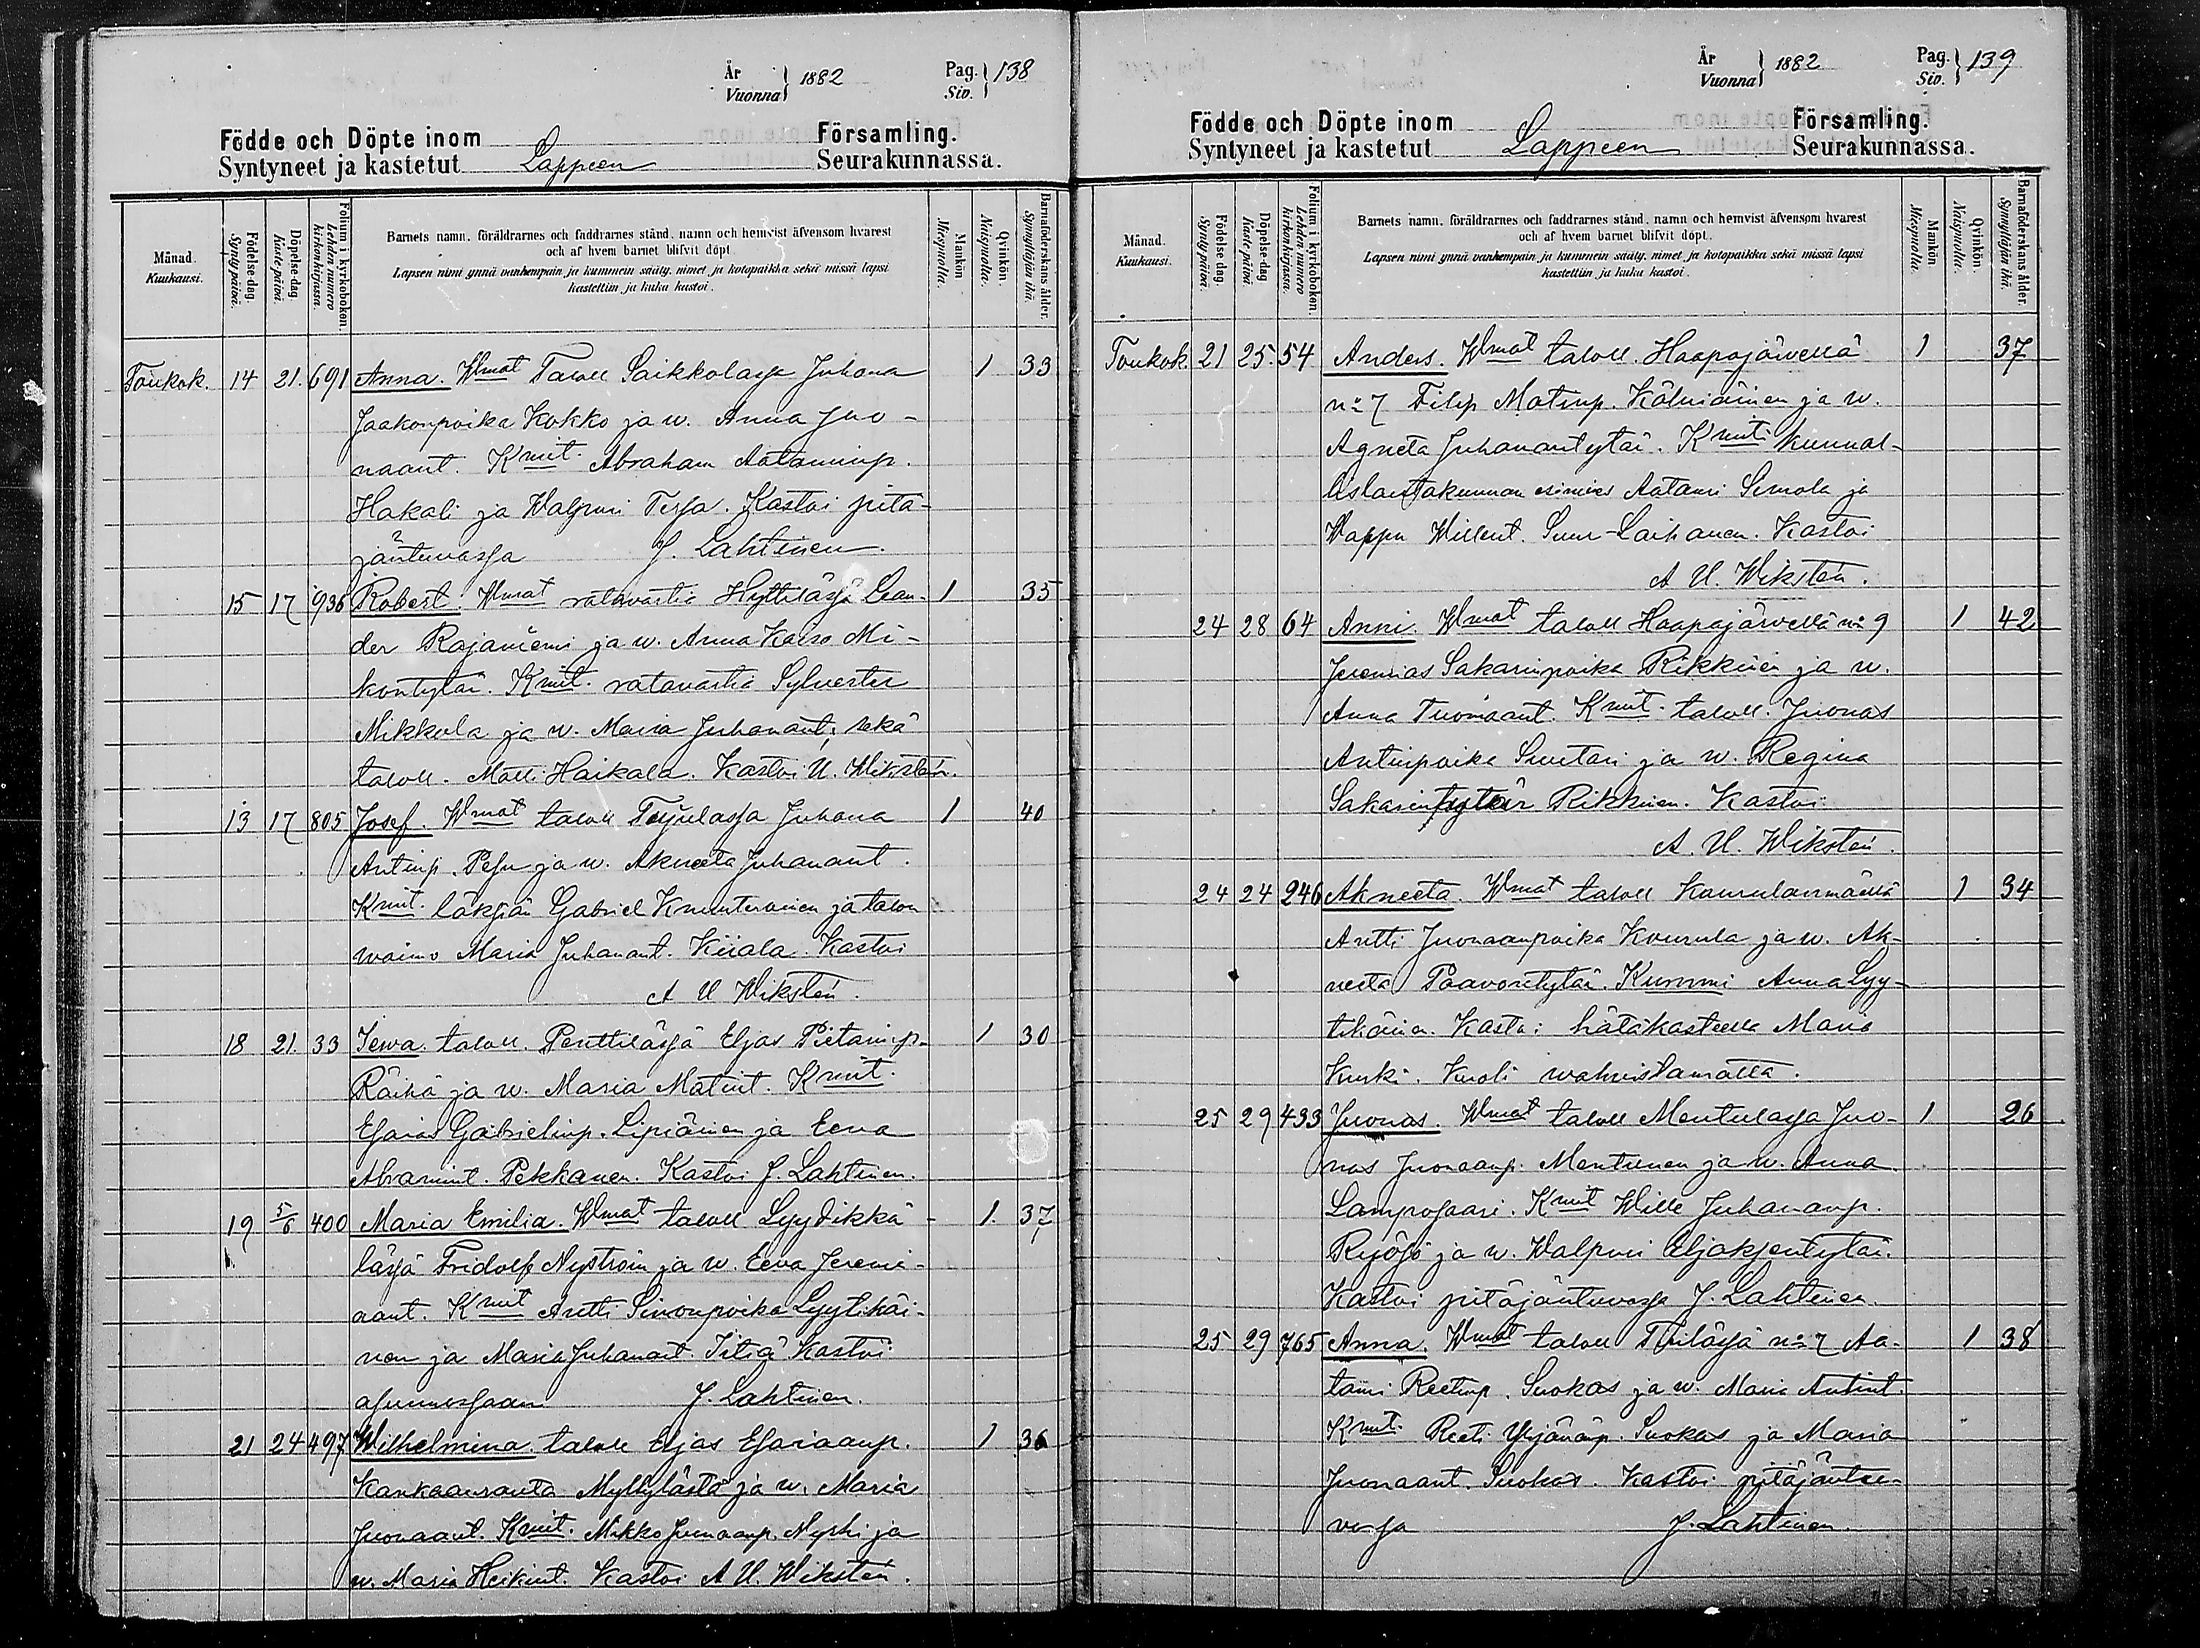 År
Vuonna 1882
Pag.
Siv. 138
Födde och Döpte inom Församling.
Syntyneet ja kastetut Lappeen Seurakunnassa.
Månad.
Kuukausi.
Födelse-dag.
Syntypäivä.
Döpelse-dag.
Kastepäivä.
Folium i kyrkoboken.
Lehden numero
kirkonkirjassa.
Barnets namn, föräldrarnes och faddrarnes stånd, namn och hemvist äfvensom hvarest
och af hvem barnet blifvit döpt.
Lapsen nimi ynnä vanhempain ja kummein sääty, nimet ja kotopaikka sekä missä lapsi
kastettiin ja kuka kastoi.
Mankön
Miespuolta.
Qvinkön.
Naispuolta.
Barnaföderskans ålder.
Synnyttäjän ikä.
Toukok. 14 21. 691 Anna. Wmat Taloll Saikkolassa Juhana 1 33
Jaakonpoika Kokko ja w. Anna Juo-
naant. Kmit. Abraham Aataminp.
Hakali ja Walpuri Tessa. Kastoi pitä-
jäntuvassa J. Lahtinen.
15 17 936 Robert. Wmat ratavartia Hyttilässä Lean- 1 35
der Rajaniemi ja w. Anna Kaiso Mi-
kontytär. Kmit. ratavartia Sylvester
Mikkola ja w. Maria Juhanant; sekä
taloll. Matti Haikala. Kastoi U. Wikstén.
13 17 805 Josef. Wmat taloll Toijulassa Juhana 1 40
Antinp. Pesu ja w. Akneeta Juhanant.
Kmit. läksiän Gabriel Kuunterainen ja talon
waimo Maria Juhanant. Kiiala. Kastoi
A U Wikstén.
18 21. 33 Eewa. taloll. Penttilässä Eljas Pietarinp. 1 30
Räihä ja w. Maria Matint. Kmit.
Esaias Gabrielinp. Lipiäinen ja Eeva
Abramint. Pekkanen. Kastoi J. Lahtinen.
19 5/6 400 Maria Emilia. Wmat taloll Lyydikkä- 1. 37
lässä Fridolf Nyström ja w. Eeva Jeremi-
aant. Kmit Antti Simonpoika Lyytikäi-
nen ja Maria Juhanant Itiä Kastoi
asunnossaan J. Lahtinen.
21 24 497 Wilhelmina. taloll Eljas Esaiaanp. 1 36
Kankaanranta Myllylästä ja w. Maria
Juonaant. Kmit. Mikko Juonaanp. Nyrhi ja
w. Maria Heikint. Kastoi A U. Wikstén.
År
Vuonna 1882
Pag.
Siv. 139
Födde och Döpte inom Församling.
Syntyneet ja kastetut Lappeen Seurakunnassa.
Månad.
Kuukausi.
Födelse dag.
Syntypäivä.
Döpelse-dag
Kastepäivä
Folium i kyrkoboken.
Lehden numero
kirkonkirjassa.
Barnets namn, föräldrarnes och faddrarnes stånd, namn och hemvist äfvensom hvarest
och af hvem barnet blifvit döpt.
Lapsen nimi ynnä vanhempain ja kummein sääty, nimet ja kotopaikka sekä missä lapsi
kastettiin ja kuka kastoi.
Mankön
Miespuolta.
Qvinkön.
Naispuolta.
Barnaföderskans ålder.
Synnyttäjän ikä.
Toukok. 21 25. 54 Anders. Wmat taloll. Haapajärvellä 1 37
no 7 Filip Matinp. Kälviäinen ja w.
Agneta Juhanantytär. Kmit: kunnal-
lislautakunnan esimies Aatami Simola ja
Wappu Willent. Suur-Laihanen. Kastoi
A U. Wikstén.
24 28 64 Anni. Wmat taloll Haapajärvellä no 9 1 42
Jeremias Sakarinpoika Rikkinen ja w.
Anna Tuomaant. Kmit. taloll. Juonas
Antinpoika Suutari ja w. Regina
Sakarintytär Rikkinen. Kastoi
A. U. Wikstén.
24 24 246 Akneeta. Wmat taloll Kaurulanmäellä 1 34
Antti Juonaanpoika Kourula ja w. Ak-
neeta Paavontytär. Kummi Anna Lyy-
tikäinen. Kastoi hätäkasteella Maria
Kurki. Kuoli wahvistamatta.
25 29 433 Juonas. Wmat taloll Mentulassa Juo- 1 26
nas Juonaanp. Mentunen ja w. Anna
Lamposaari. Kmit Wille Juhananp.
Ryösö ja w. Walpuri Eljaksentytär.
Kastoi pitäjäntuvassa J. Lahtinen.
25 29 765 Anna. Wmat taloll Tiilässä no 7 Aa- 1 38
tami Reetinp. Suokas ja w. Maria Antint.
Kmit. Reeti Yrjänänp. Suokas ja Maria
Juonaant. Suokas. Kastoi pitäjäntu-
vassa J. Lahtinen.